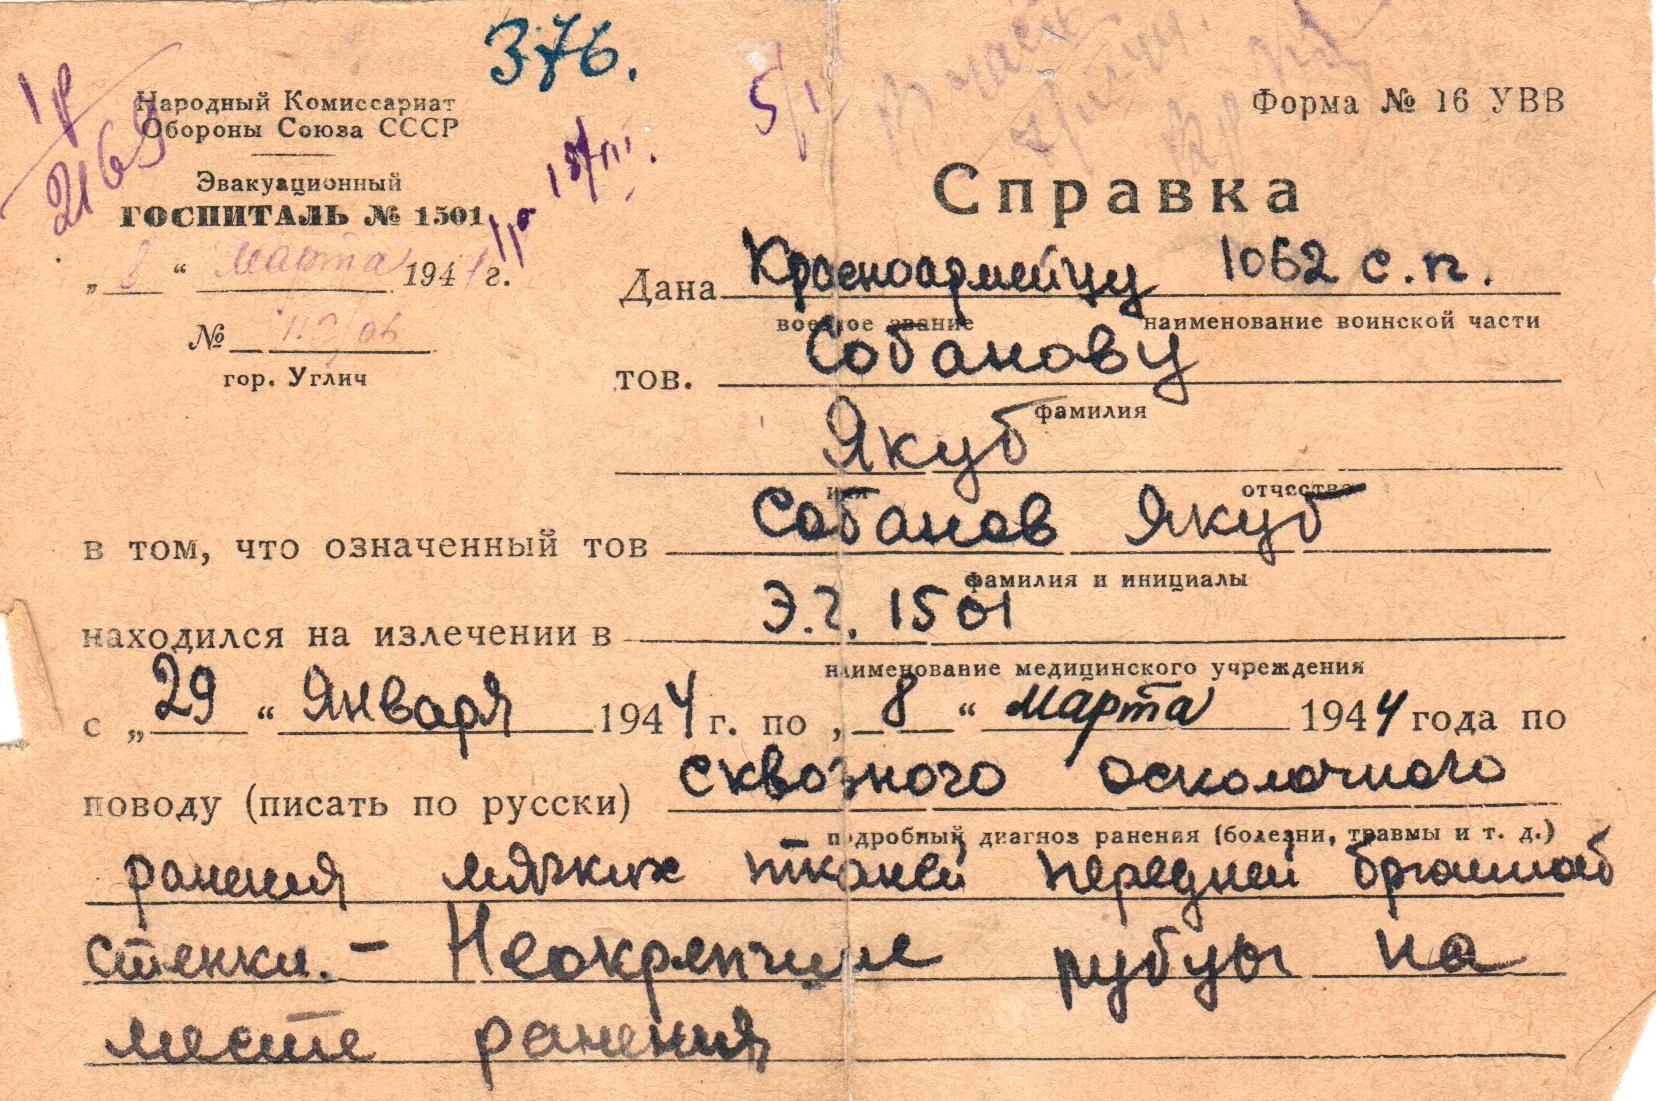 376.
5/I
1р
2169
Народный Комиссариат
Обороны Союза СССР
Форма № 16 УВВ
Эвакуационный
ГОСПИТАЛЬ № 1501
Справка
„8 “ марта 1944 г.
Дана Красноармейцу 1062 с.п.
военное звание наименование воинской части
№
гор. Углич
тов. Собанову
фамилия
Якуб
имя отчество
в том, что означенный тов Собанов Якуб
фамилия и инициалы
находился на излечении в Э.г. 1501
наименование медицинского учреждения
с „29 “ Января 1944 г. по „8 “ марта 1944 года по
поводу (писать по русски) сквозного осколочного
подробный диагноз ранения (болезни, травмы и т. д.)
ранения мягких тканей передней брюшной
стенки. – Неокрепшие рубцы на
месте ранения